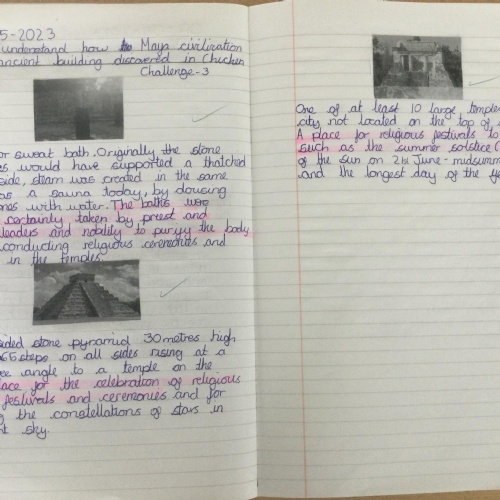 5-2023
understand how to Maya civilization
ancient building discovered in Chichen
Challenge-3
or sweat bath. Originally the stone
es would have supported a thatched
side, steam was created in the same
as a sauna today, by dousing
ones with water. The baths were
certainly taken by priest and
leaders and nobility to puryy the body
conducting religious ceremonies and
in the temples.
sided stone pyramid 30 metres high
65 steps on all sides rising at a
ee angle to a temple on the
lace for the celebration of religious
festivals and ceremonies and for
g the constellations of stars in
nt sky.
One of at least 10 large temples
city not located on the top of a
A place for religious festivals to
such as the summer solstice (
of the sun on 21st June - midsumm
and the longest day of the ye